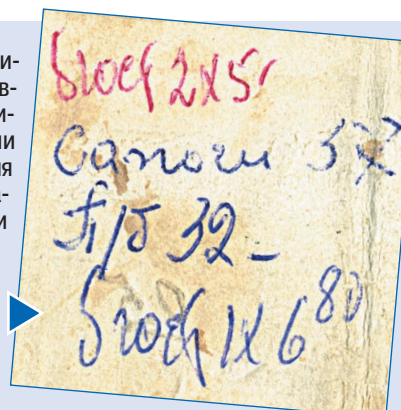 и-
в-
и-
и
я
а-
и
блок 2х5
Сапоги
32 -
блок 1х6 80